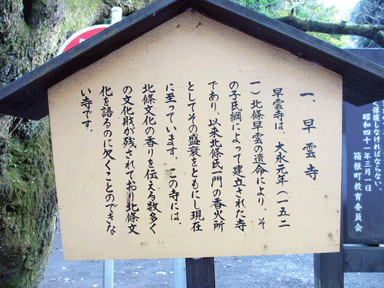 一、早雲寺
早雲寺は、大永元年(一五二
一)北條早雲の遺命により、そ
の子氏綱によって建立された寺
であり、以来北條氏一門の香火所
としてその盛衰をともにし現在
に至っています。この寺には、
北條文化の香りを伝える数多く
の文化財が残されており北條文
化を語るのに欠くことのできな
い寺です。
昭和四十一年三月一日
箱根町教育委員会